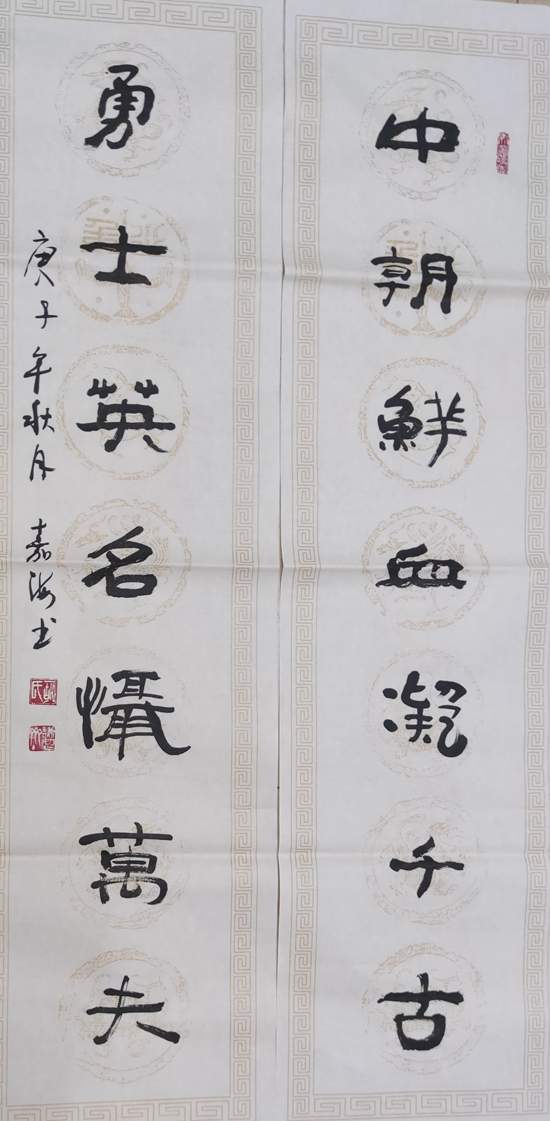 中朝鮮血凝千古
勇士英名懾萬夫
庚子年秋月 嘉海书